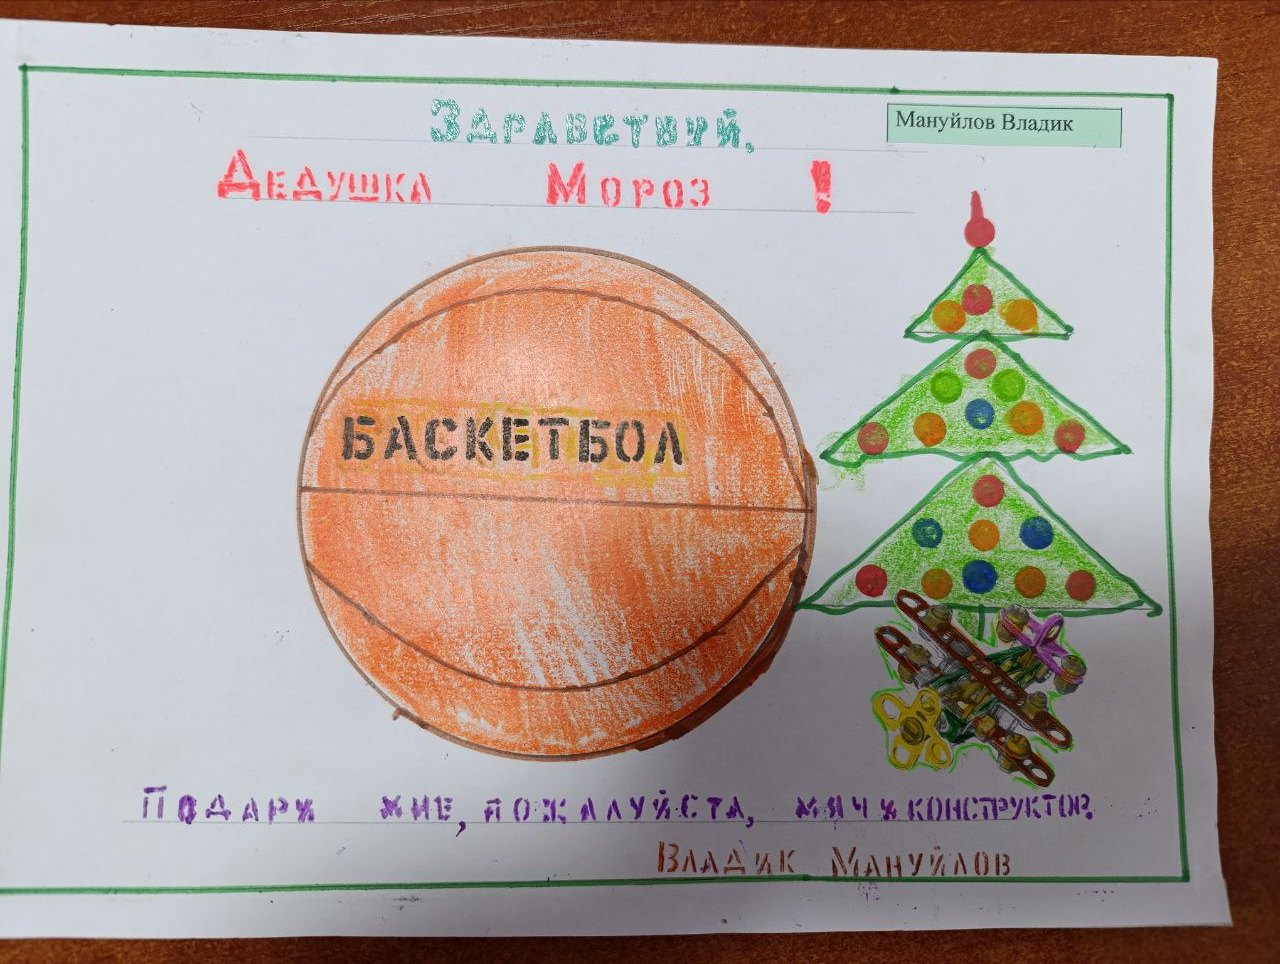 Здравствуй,
Мануйлов Владик
Дедушка Мороз !
БАСКЕТБОЛ
Подари мне, пожалуйста, мяч и конструктор.
Владик Мануйлов